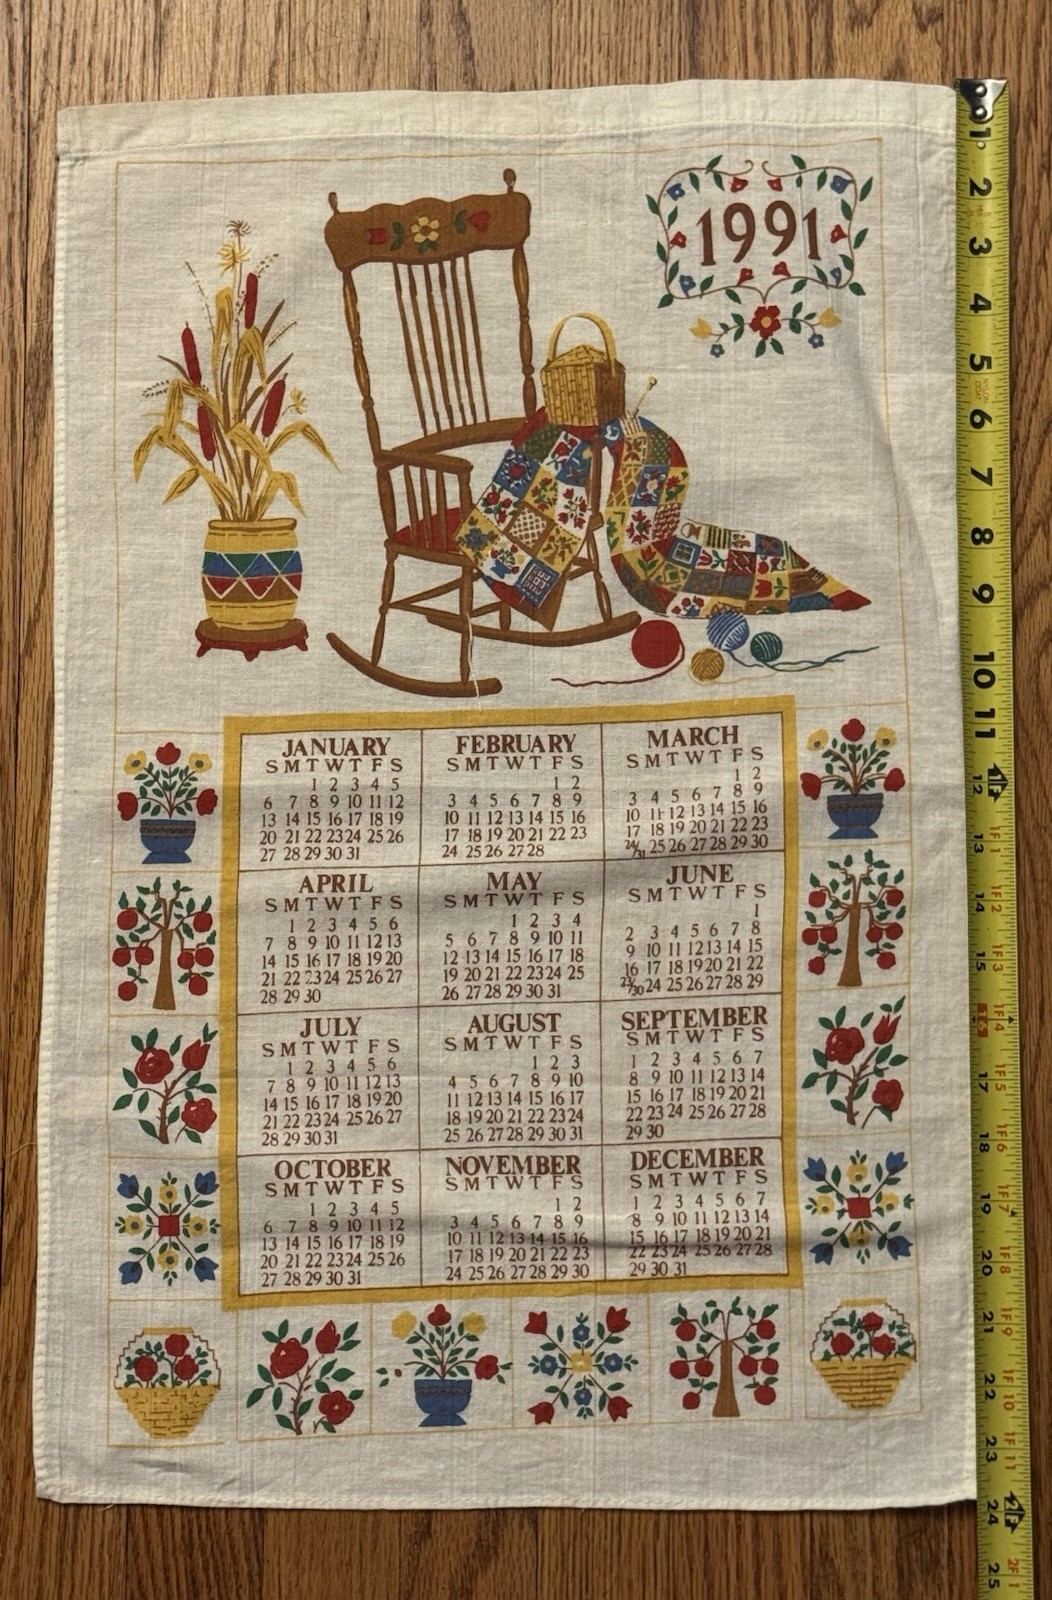 1991
JANUARY
S M T W T F S
1 2 3 4 5
6 7 8 9 10 11 12
13 14 15 16 17 18 19
20 21 22 23 24 25 26
27 28 29 30 31
FEBRUARY
S M T W T F S
1 2
3 4 5 6 7 8 9
10 11 12 13 14 15 16
17 18 19 20 21 22 23
24 25 26 27 28
MARCH
S M T W T F S
1 2
3 4 5 6 7 8 9
10 11 12 13 14 15 16
17 18 19 20 21 22 23
24/31 25 26 27 28 29 30
APRIL
S M T W T F S
1 2 3 4 5 6
7 8 9 10 11 12 13
14 15 16 17 18 19 20
21 22 23 24 25 26 27
28 29 30
MAY
S M T W T F S
1 2 3 4
5 6 7 8 9 10 11
12 13 14 15 16 17 18
19 20 21 22 23 24 25
26 27 28 29 30 31
JUNE
S M T W T F S
1
2 3 4 5 6 7 8
9 10 11 12 13 14 15
16 17 18 19 20 21 22
23/30 24 25 26 27 28 29
JULY
S M T W T F S
1 2 3 4 5 6
7 8 9 10 11 12 13
14 15 16 17 18 19 20
21 22 23 24 25 26 27
28 29 30 31
AUGUST
S M T W T F S
1 2 3
4 5 6 7 8 9 10
11 12 13 14 15 16 17
18 19 20 21 22 23 24
25 26 27 28 29 30 31
SEPTEMBER
S M T W T F S
1 2 3 4 5 6 7
8 9 10 11 12 13 14
15 16 17 18 19 20 21
22 23 24 25 26 27 28
29 30
OCTOBER
S M T W T F S
1 2 3 4 5
6 7 8 9 10 11 12
13 14 15 16 17 18 19
20 21 22 23 24 25 26
27 28 29 30 31
NOVEMBER
S M T W T F S
1 2
3 4 5 6 7 8 9
10 11 12 13 14 15 16
17 18 19 20 21 22 23
24 25 26 27 28 29 30
DECEMBER
S M T W T F S
1 2 3 4 5 6 7
8 9 10 11 12 13 14
15 16 17 18 19 20 21
22 23 24 25 26 27 28
29 30 31
1
2
3
4
5
6
7
8
9
10
11
12 1F
13 1F1
14 1F2
15 1F3
16 1F4
17 1F5
18 1F6
19 1F7
20 1F8
21 1F9
22 1F10
23 1F11
24 2F
25 2F1